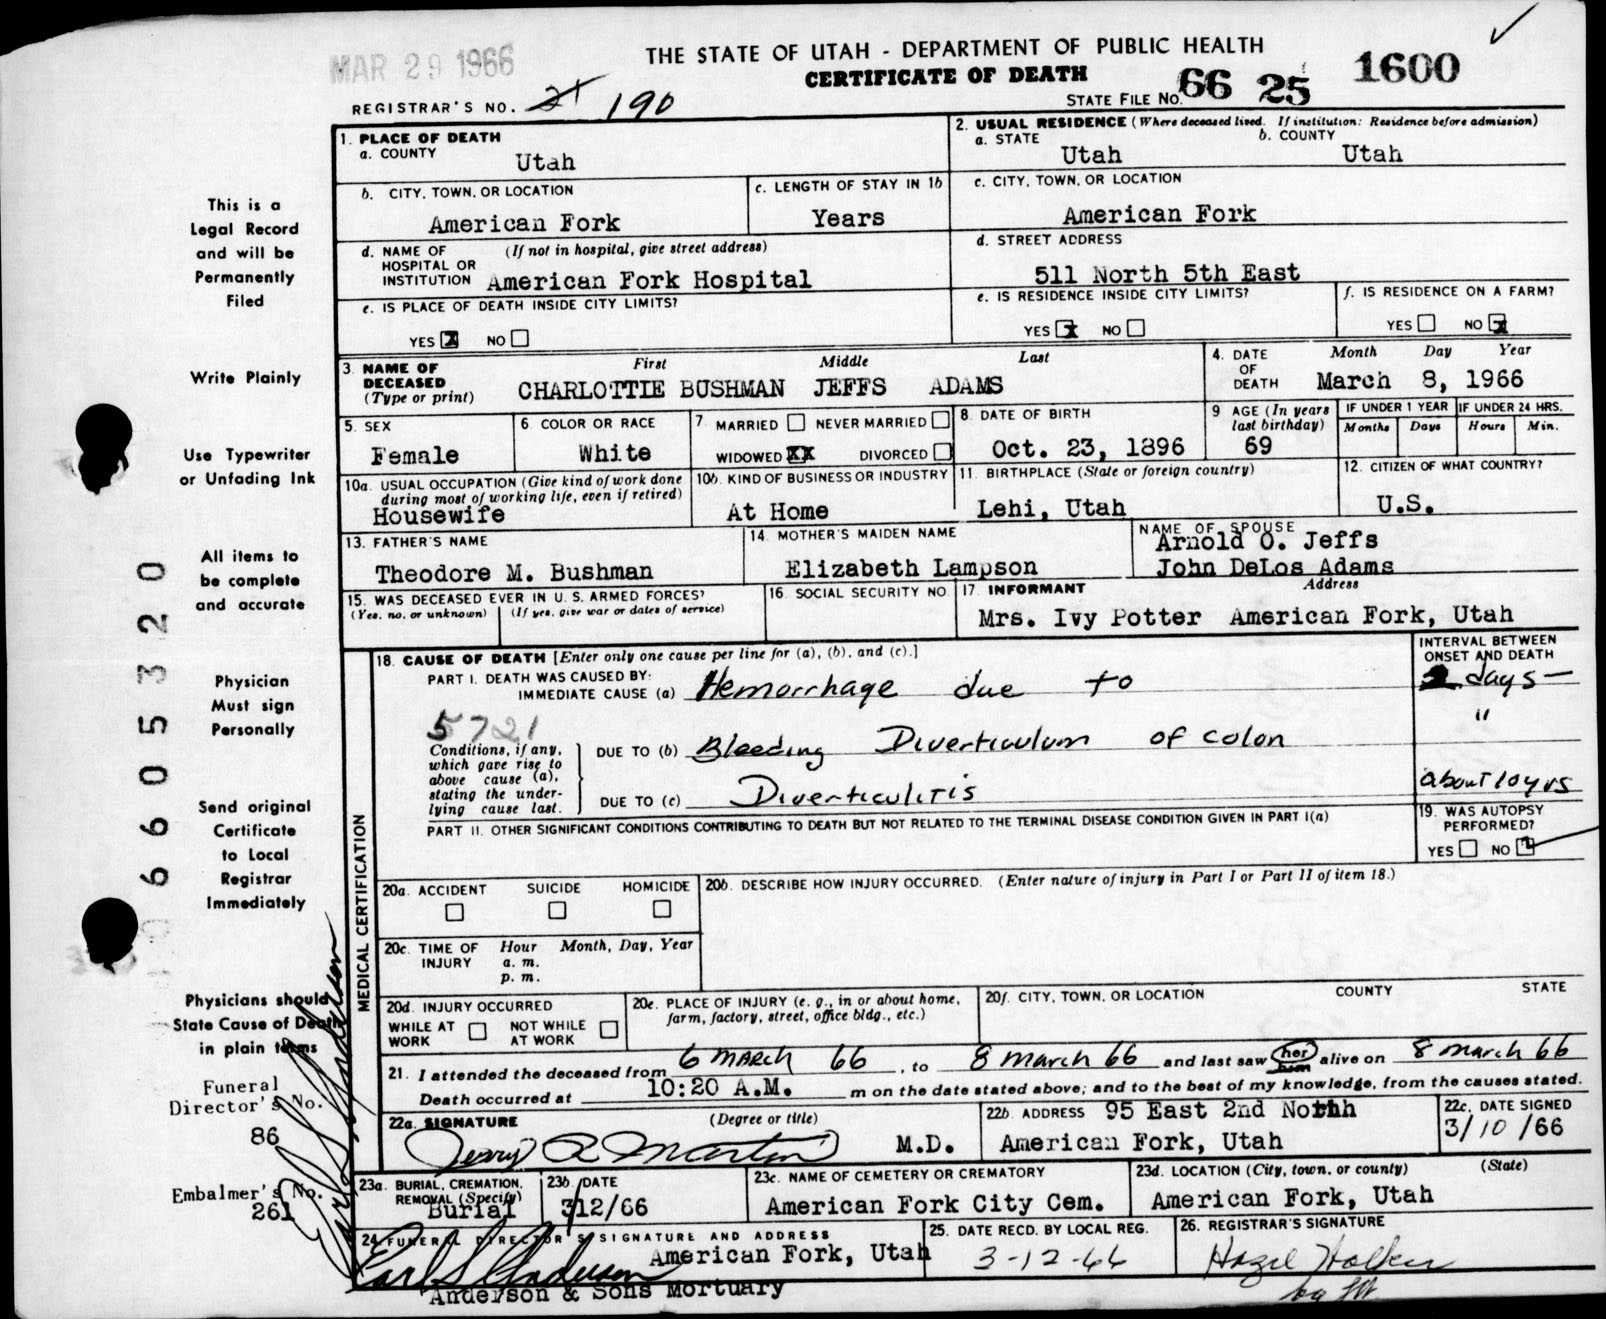 MAR 29 1966
THE STATE OF UTAH - DEPARTMENT OF PUBLIC HEALTH
CERTIFICATE OF DEATH
1600
REGISTRAR'S NO. 190
STATE FILE NO. 66 25
1. PLACE OF DEATH
a. COUNTY
Utah
2. USUAL RESIDENCE (Where deceased lived. If institution: Residence before admission)
a. STATE
Utah
b. COUNTY
Utah
b. CITY, TOWN, OR LOCATION
American Fork
c. LENGTH OF STAY IN 1b
Years
c. CITY, TOWN, OR LOCATION
American Fork
d. NAME OF HOSPITAL OR INSTITUTION
(If not in hospital, give street address)
American Fork Hospital
d. STREET ADDRESS
511 North 5th East
e. IS PLACE OF DEATH INSIDE CITY LIMITS?
YES X NO
e. IS RESIDENCE INSIDE CITY LIMITS?
YES X NO
f. IS RESIDENCE ON A FARM?
YES NO X
3. NAME OF DECEASED (Type or print)
First Middle Last
CHARLOTTIE BUSHMAN JEFFS ADAMS
4. DATE OF DEATH
Month Day Year
March 8, 1966
5. SEX
Female
6 COLOR OR RACE
White
7. MARRIED NEVER MARRIED
WIDOWED XX DIVORCED
8. DATE OF BIRTH
Oct. 23, 1896
9 AGE (In years last birthday)
69
IF UNDER 1 YEAR
Months Days
IF UNDER 24 HRS.
Hours Min.
10a. USUAL OCCUPATION (Give kind of work done during most of working life, even if retired)
Housewife
10b. KIND OF BUSINESS OR INDUSTRY
At Home
11. BIRTHPLACE (State or foreign country)
Lehi, Utah
12. CITIZEN OF WHAT COUNTRY?
U.S.
13. FATHER'S NAME
Theodore M. Bushman
14. MOTHER'S MAIDEN NAME
Elizabeth Lampson
NAME OF SPOUSE
Arnold O. Jeffs
John DeLos Adams
15. WAS DECEASED EVER IN U. S. ARMED FORCES?
(Yes, no, or unknown) (If yes, give war or dates of service)
16. SOCIAL SECURITY NO.
17. INFORMANT Address
Mrs. Ivy Potter American Fork, Utah
MEDICAL CERTIFICATION
18. CAUSE OF DEATH [Enter only one cause per line for (a), (b), and (c).]
INTERVAL BETWEEN ONSET AND DEATH
PART I. DEATH WAS CAUSED BY:
IMMEDIATE CAUSE (a) Hemorrhage due to
2 days —
5721
Conditions, if any, which gave rise to above cause (a), stating the under-lying cause last.
DUE TO (b) Bleeding Diverticulum of colon
"
DUE TO (c) Diverticulitis
about 10 yrs
PART II. OTHER SIGNIFICANT CONDITIONS CONTRIBUTING TO DEATH BUT NOT RELATED TO THE TERMINAL DISEASE CONDITION GIVEN IN PART I(a)
19. WAS AUTOPSY PERFORMED?
YES NO
20a. ACCIDENT SUICIDE HOMICIDE
20b. DESCRIBE HOW INJURY OCCURRED. (Enter nature of injury in Part I or Part II of item 18.)
20c. TIME OF INJURY
Hour Month, Day, Year
a. m.
p. m.
20d. INJURY OCCURRED
WHILE AT WORK NOT WHILE AT WORK
20e. PLACE OF INJURY (e. g., in or about home, farm, factory, street, office bldg., etc.)
20f. CITY, TOWN, OR LOCATION COUNTY STATE
21. I attended the deceased from 6 March 66, to 8 March 66 and last saw her him alive on 8 March 66
Death occurred at 10:20 A.M. m on the date stated above; and to the best of my knowledge, from the causes stated.
22a. SIGNATURE (Degree or title)
Jerry R Martin M.D.
22b. ADDRESS 95 East 2nd North
American Fork, Utah
22c. DATE SIGNED
3/10/66
23a. BURIAL, CREMATION, REMOVAL (Specify)
Burial
23b. DATE
3/12/66
23c. NAME OF CEMETERY OR CREMATORY
American Fork City Cem.
23d. LOCATION (City, town, or county) (State)
American Fork, Utah
24. FUNERAL DIRECTOR'S SIGNATURE AND ADDRESS
Earl S Anderson
American Fork, Utah
Anderson & Sons Mortuary
25. DATE RECD. BY LOCAL REG.
3-12-66
26. REGISTRAR'S SIGNATURE
Hazel Walker
This is a
Legal Record
and will be
Permanently
Filed
Write Plainly
Use Typewriter
or Unfading Ink
All items to
be complete
and accurate
Physician
Must sign
Personally
Send original
Certificate
to Local
Registrar
Immediately
Physicians should
State Cause of Death
in plain terms
Funeral
Director's No.
86
Embalmer's No.
261
Earl S Anderson
6605320